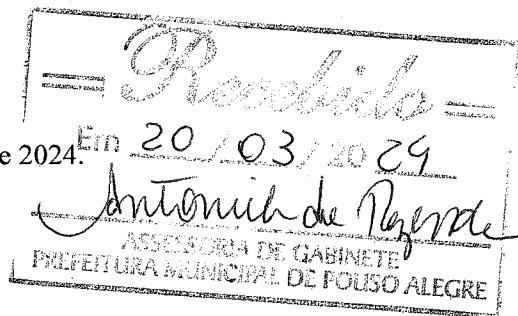 Recebido
e 2024.
Em 20 / 03 / 20 24
Antonia de Rezende
ASSESSORIA DE GABINETE
PREFEITURA MUNICIPAL DE POUSO ALEGRE